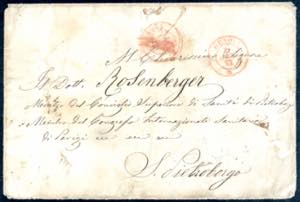 Al Chiarissimo Signore
Il Dott. Rosenberger
Membro del Consiglio Supremo di Sanità di Pietrobo
e Membro del Congresso Internazionale Sanitario
di Parigi
S. Pietroborgo